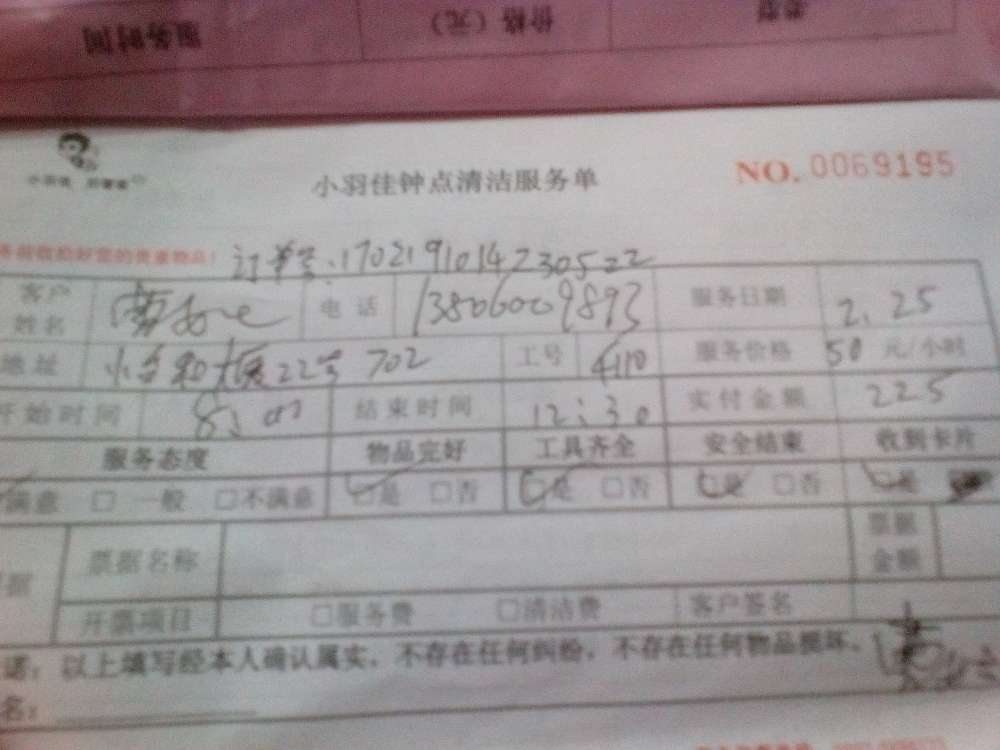 服务时间 价格（元） 类型
小羽佳钟点清洁服务单 NO. 0069195
订单号：1702191014230522
客户姓名 电话 13806009893 服务日期 2.25
地址 22号702 工号 4110 服务价格 50 元/小时
开始时间 8:00 结束时间 12:30 实付金额 225
服务态度 物品完好 工具齐全 安全结束 收到卡片
满意 □ 一般 □不满意 □是 □否 □是 □否 □是 □否 □是
票据名称 票据金额
开票项目 □服务费 □清洁费 客户签名
诺：以上填写经本人确认属实，不存在任何纠纷，不存在任何物品损坏。
名：